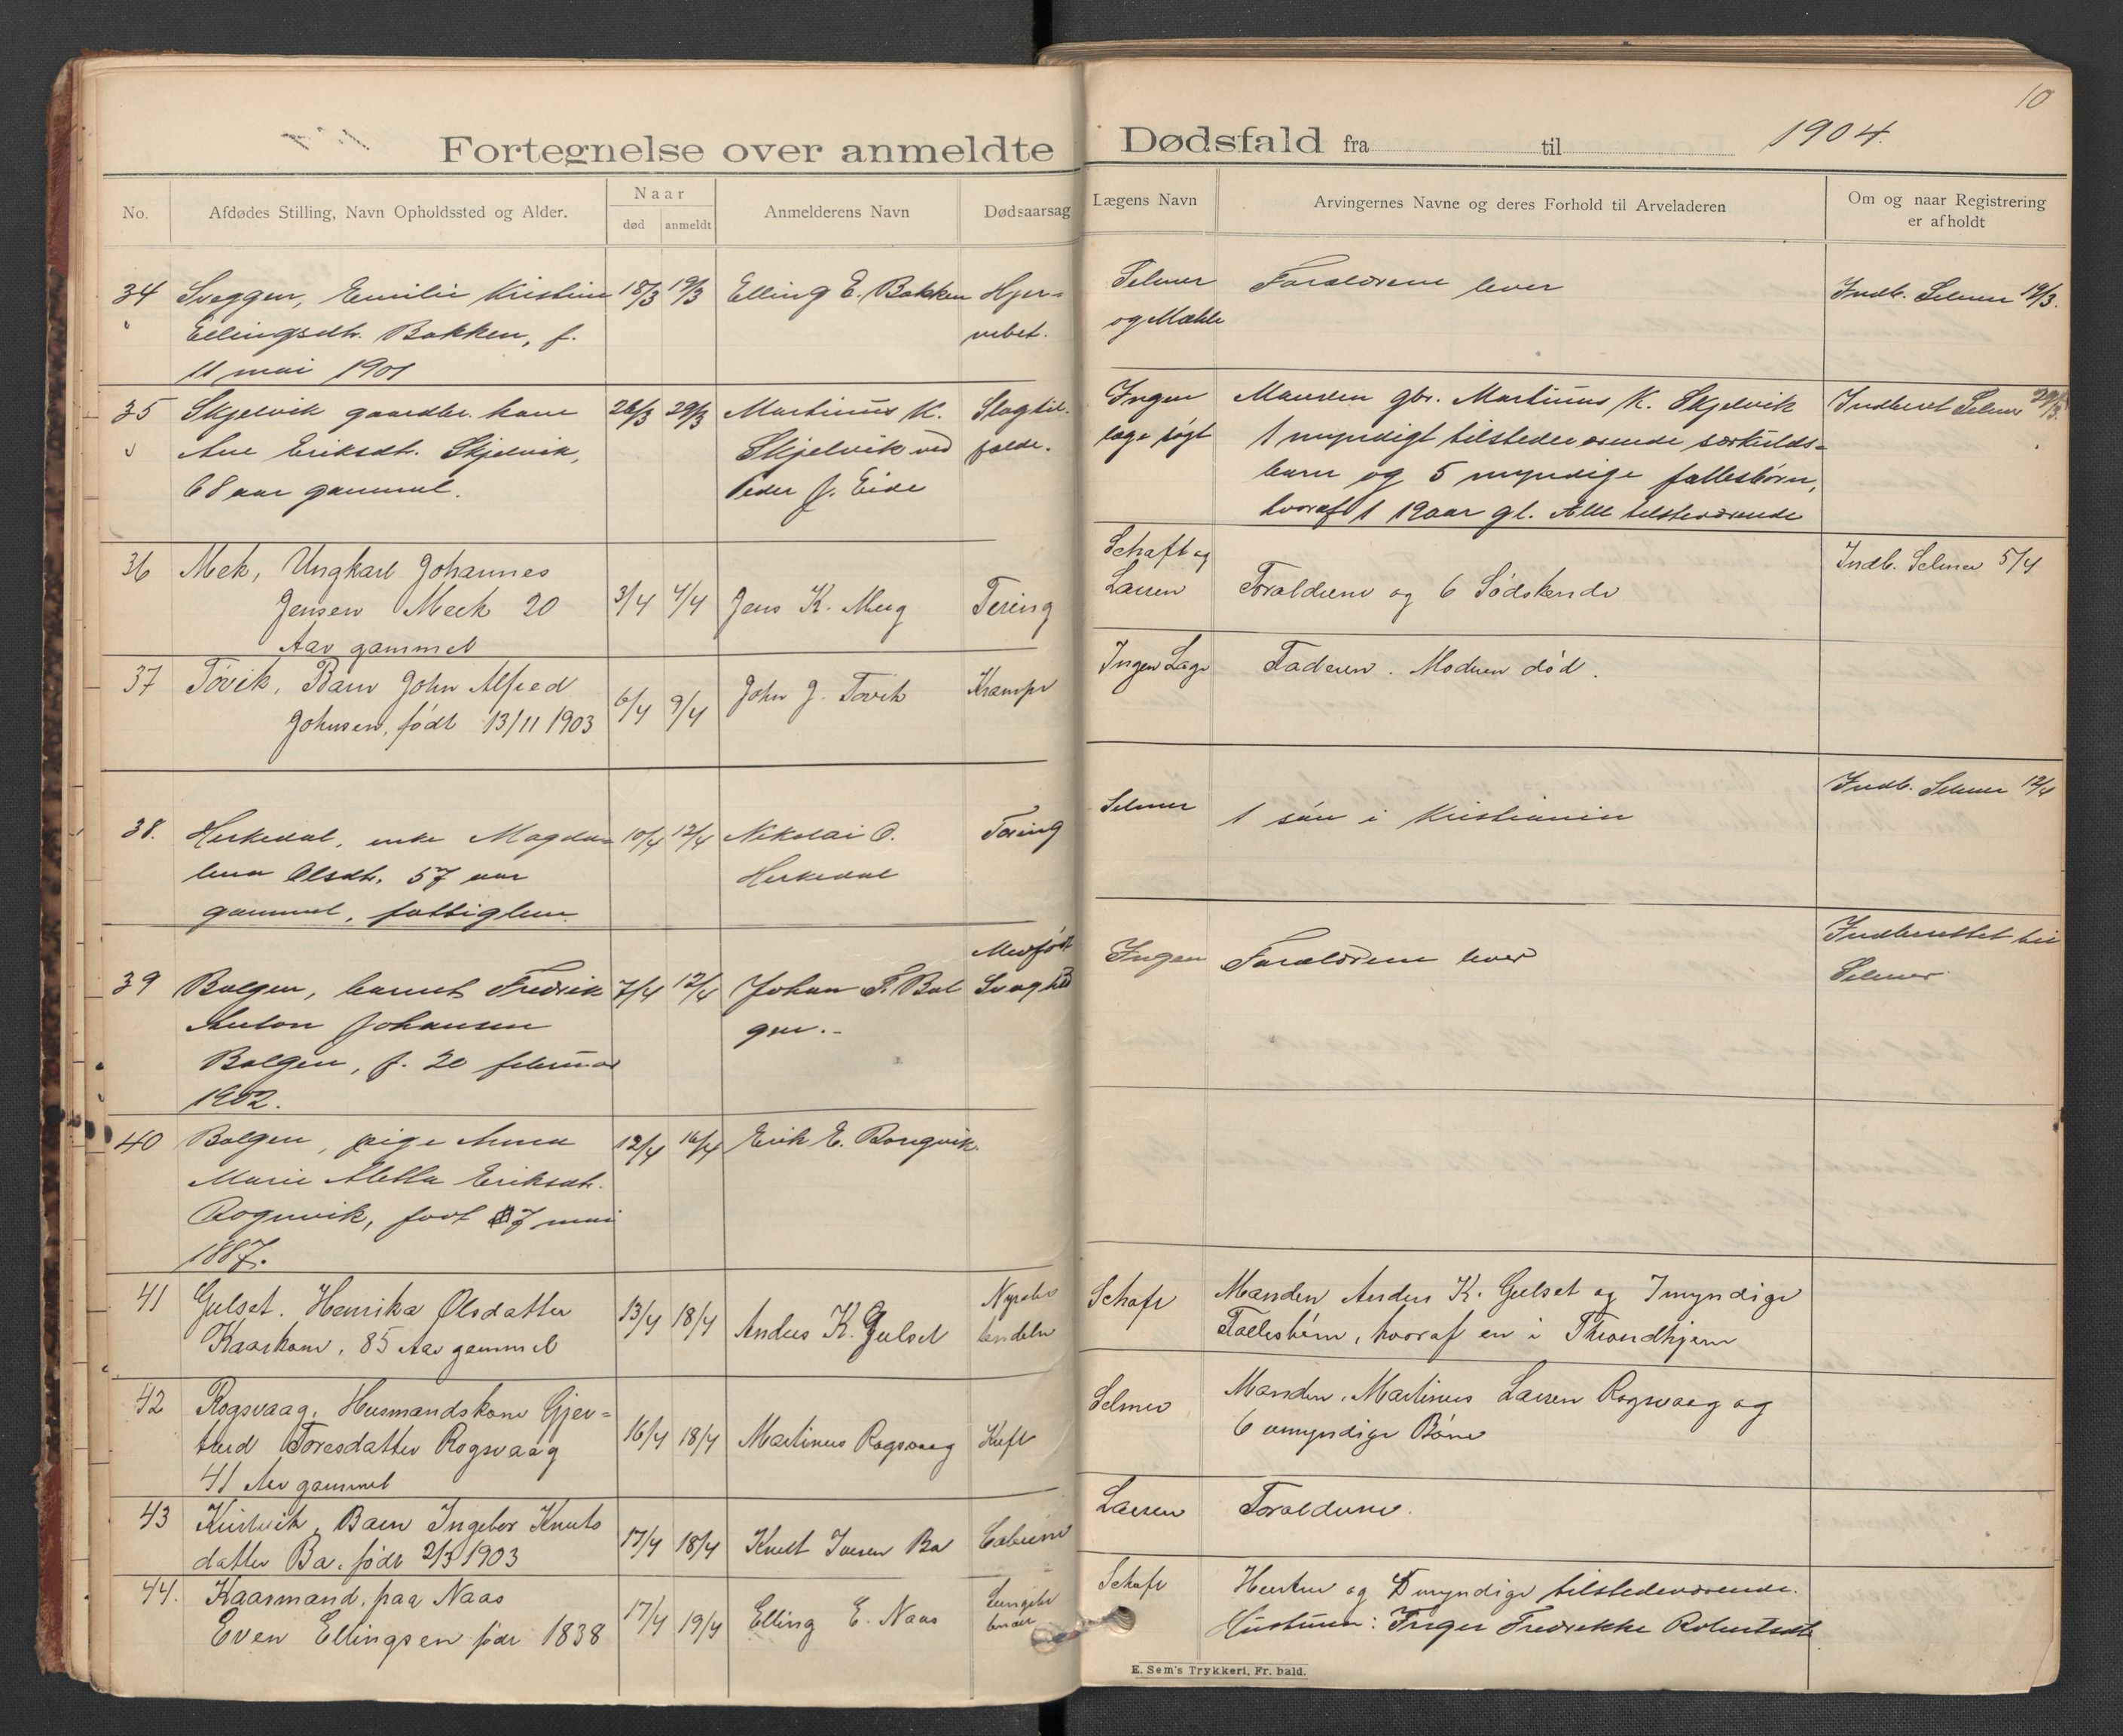 10
Fortegnelse over anmeldte Dødsfald fra til 1904.
No.
Afdødes Stilling, Navn Opholdssted og Alder.
Naar
død
anmeldt
Anmelderens Navn
Dødsaarsag
Lægens Navn
Arvingernes Navne og deres Forhold til Arveladeren
Om og naar Registrering
er afholdt
34 Sveggen, Emilie Kristine 18/3 19/3 Elling E. Bakken Hjer-
Ellingsdtr. Bakken, f. nebet.
11 mai 1901
Selmer Forældrene lever Indb. Selmer 19/3.
og Mæhle
35 Skjelvik gaardbr. kone 26/3 29/3 Martinus K. Slagtil-
Ane Eriksdtr. Skjelvik, Skjelvik ved fælde.
68 aar gammel. Peder J. Eide
Ingen Manden gbr. Martinus K. Skjelvik Indberet Selmer 29/3
læge søgt 1 myndigt tilstedeværende særkulds-
barn og 5 myndige fællesbørn,
hvoraf 1 19 aar gl. Alle tilsteværende
36 Mek, Ungkarl Johannes
Jensen Meek 20 3/4 4/4 Jens K. Meeg Tering
Aar gammel
Schaft og Indb. Selmer 5/4
Larsen Forældrene og 6 Sødskende
37 Tøvik, Barn John Alfred 6/4 9/4 John J. Tøvik Krampe
Johnsen, født 13/11 1903
Ingen Læge Faderen. Moderen død.
38. Herkedal, enke Magda- 10/4 12/4 Nikolai O. Tæring
lena Olsdtr. 57 aar Herkedal
gammel, fattiglem.
Selmer 1 søn i Kristiania Indb. Selmer 12/4
39 Bolgen, barnet Fredrik 7/4 12/4 Johan F. Bol Medfødt
Anton Johansen gen.- Svaghed
Bolgen, f. 20 februar
1902.
Ingen Forældrene lever Indberettet til
Selmer
40 Bolgen, pige Anna 12/4 16/4 Erik E. Rongvik.
Marie Aletta Eriksdtr.
Rognvik, født 7 mai
1887.
41 Gulset. Henrika Olsdatter 13/4 18/4 Anders K. Gulset
Kaarkone, 85 Aar gammel
Schaft Manden Anders K. Gulset og 7 myndige
Fællesbørn, hvoraf en i Throndhjem
42 Rogsvaag, Husmandskone Gjer-
trud Toresdatter Rogsvaag 16/4 18/4 Martinus Rogsvaag Kræft
41 Aar gammel
Selmer Manden, Martinus Larsen Rogsvaag og
6 umyndige Børn
43 Kristvik, Barn Ingebor Knuts
datter Bø. født 2/3 1903 17/4 18/4 Knut Iversen Bø
Larsen Forældrene.
44. Kaarmand, paa Naas
Even Ellingsen født 1838 17/4 19/4 Elling E. Naas Lungebe
Schaft Hustru og 4 myndige tilstedeværende.
Hustruen: Inger Fredrikke Robertsdtr.
E. Sem's Trykkeri, Fr. hald.